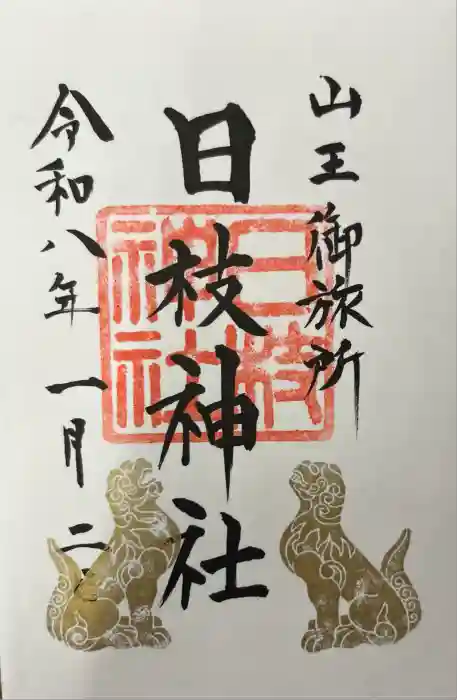 山王御旅所
日枝神社
令和八年一月二